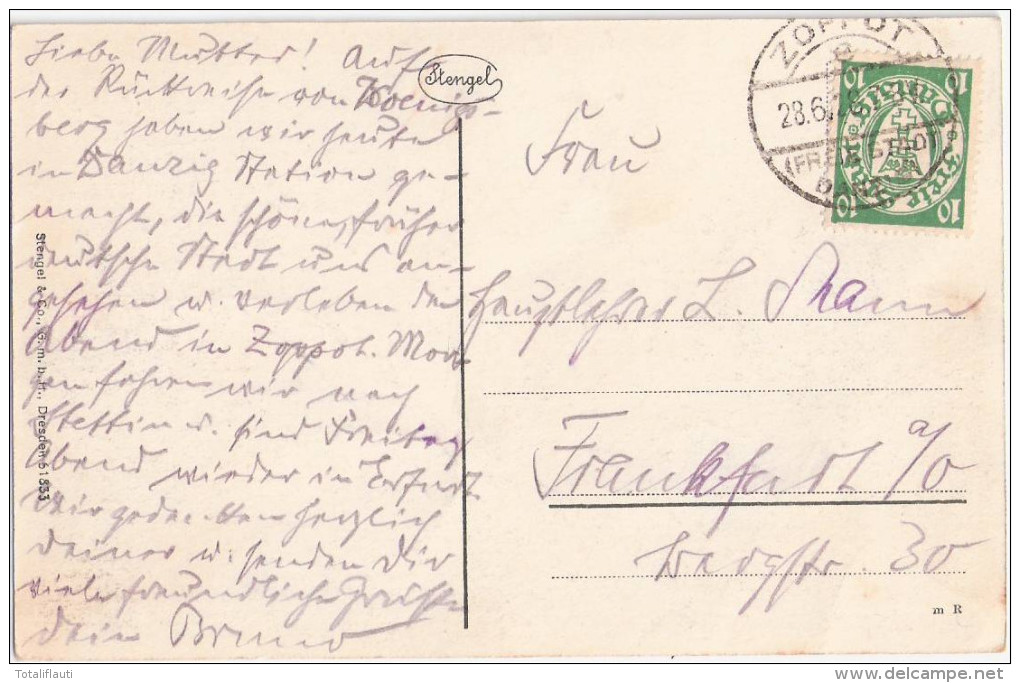 Liebe Mutter! Auf
der Rückreise von Koenigs-
berg haben wir heute
in Danzig Station ge-
macht, die schöne, früher
deutsche Stadt uns an-
gesehen u. verleben den
Abend in Zoppot. Mor-
gen fahren wir nach
Stettin u. sind Freitag
Abend wieder in Erfurt
Wir gedenken herzlich
deiner u. senden Dir
viele freundliche Grüsse
dein Bruno
Stengel
Stengel & Co., G. m. b. H., Dresden 61833
ZOPPOT
28.6.
(FREIE STADT
10
10
10
Freie Stadt Danzig
Frau
Hauptlehrer L.
Frankfurt a/O
30
m R
Totaliflauti
www.delcampe.net